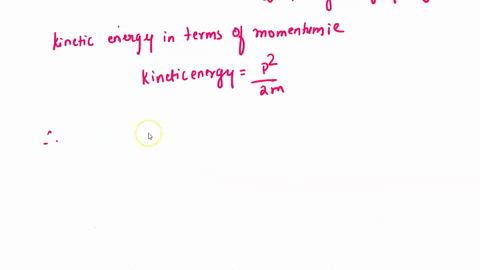 kinetic energy in terms of momentum ie
kinetic energy = p²/2m
∴